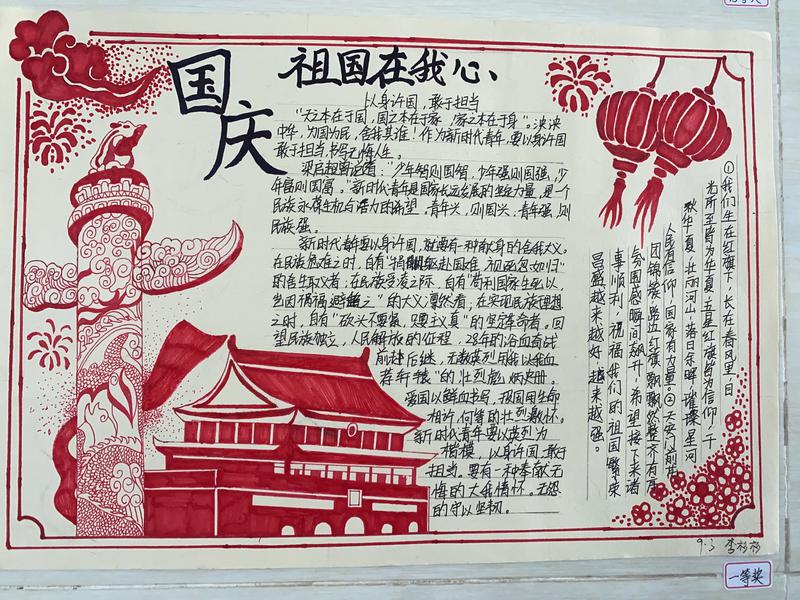 国庆
祖国在我心
以身许国，敢于担当
"天之本在于国，国之本在于家，家之本在于身"。泱泱
中华，为国为民，舍我其谁！作为新时代青年，要以身许国
敢于担当，书写无悔人生。
梁启超曾论道："少年智则国智，少年强则国强，少
年富则国富。"新时代青年是国家长远发展的坚定力量，是一个
民族永葆生机与潜力的希望，青年兴，则国兴，青年强，则
民族强。
新时代青年要以身许国，就要有一种献身的舍我大义。
在民族危难之时，自有"捐躯赴国难，视死忽如归"
的舍生取义者；在民族受凌之际，自有"苟利国家生死以，
岂因祸福避趋之"的大义凛然者，在实现民族理想
之时，自有"砍头不要紧，只要主义真"的坚定革命者。回
望民族独立，人民解放的征程，28年的浴血奋战
前赴后继，无数英烈用"我以我血
荐轩辕"的壮烈彪炳史册。
爱国以鲜血书写，报国用生命
相许，何等的壮烈激怀。
新时代青年要以英烈为
楷模，以身许国，敢于
担当，要有一种奉献无
悔的大我情怀。无怨
的守以坚韧。
①我们生在红旗下，长在春风里，目
光所至皆为华夏，五星红旗皆为信仰，千
秋华夏，壮丽河山，落日余晖，璀璨星河
人民有信仰，国家有力量。②天安门前花
团锦簇，路边红旗飘飘然，整齐有序
氛围感瞬间飙升，希望接下来诸
事顺利，祝福我们的祖国繁荣
昌盛越来越好，越来越强。
9.3 李杉杉
一等奖